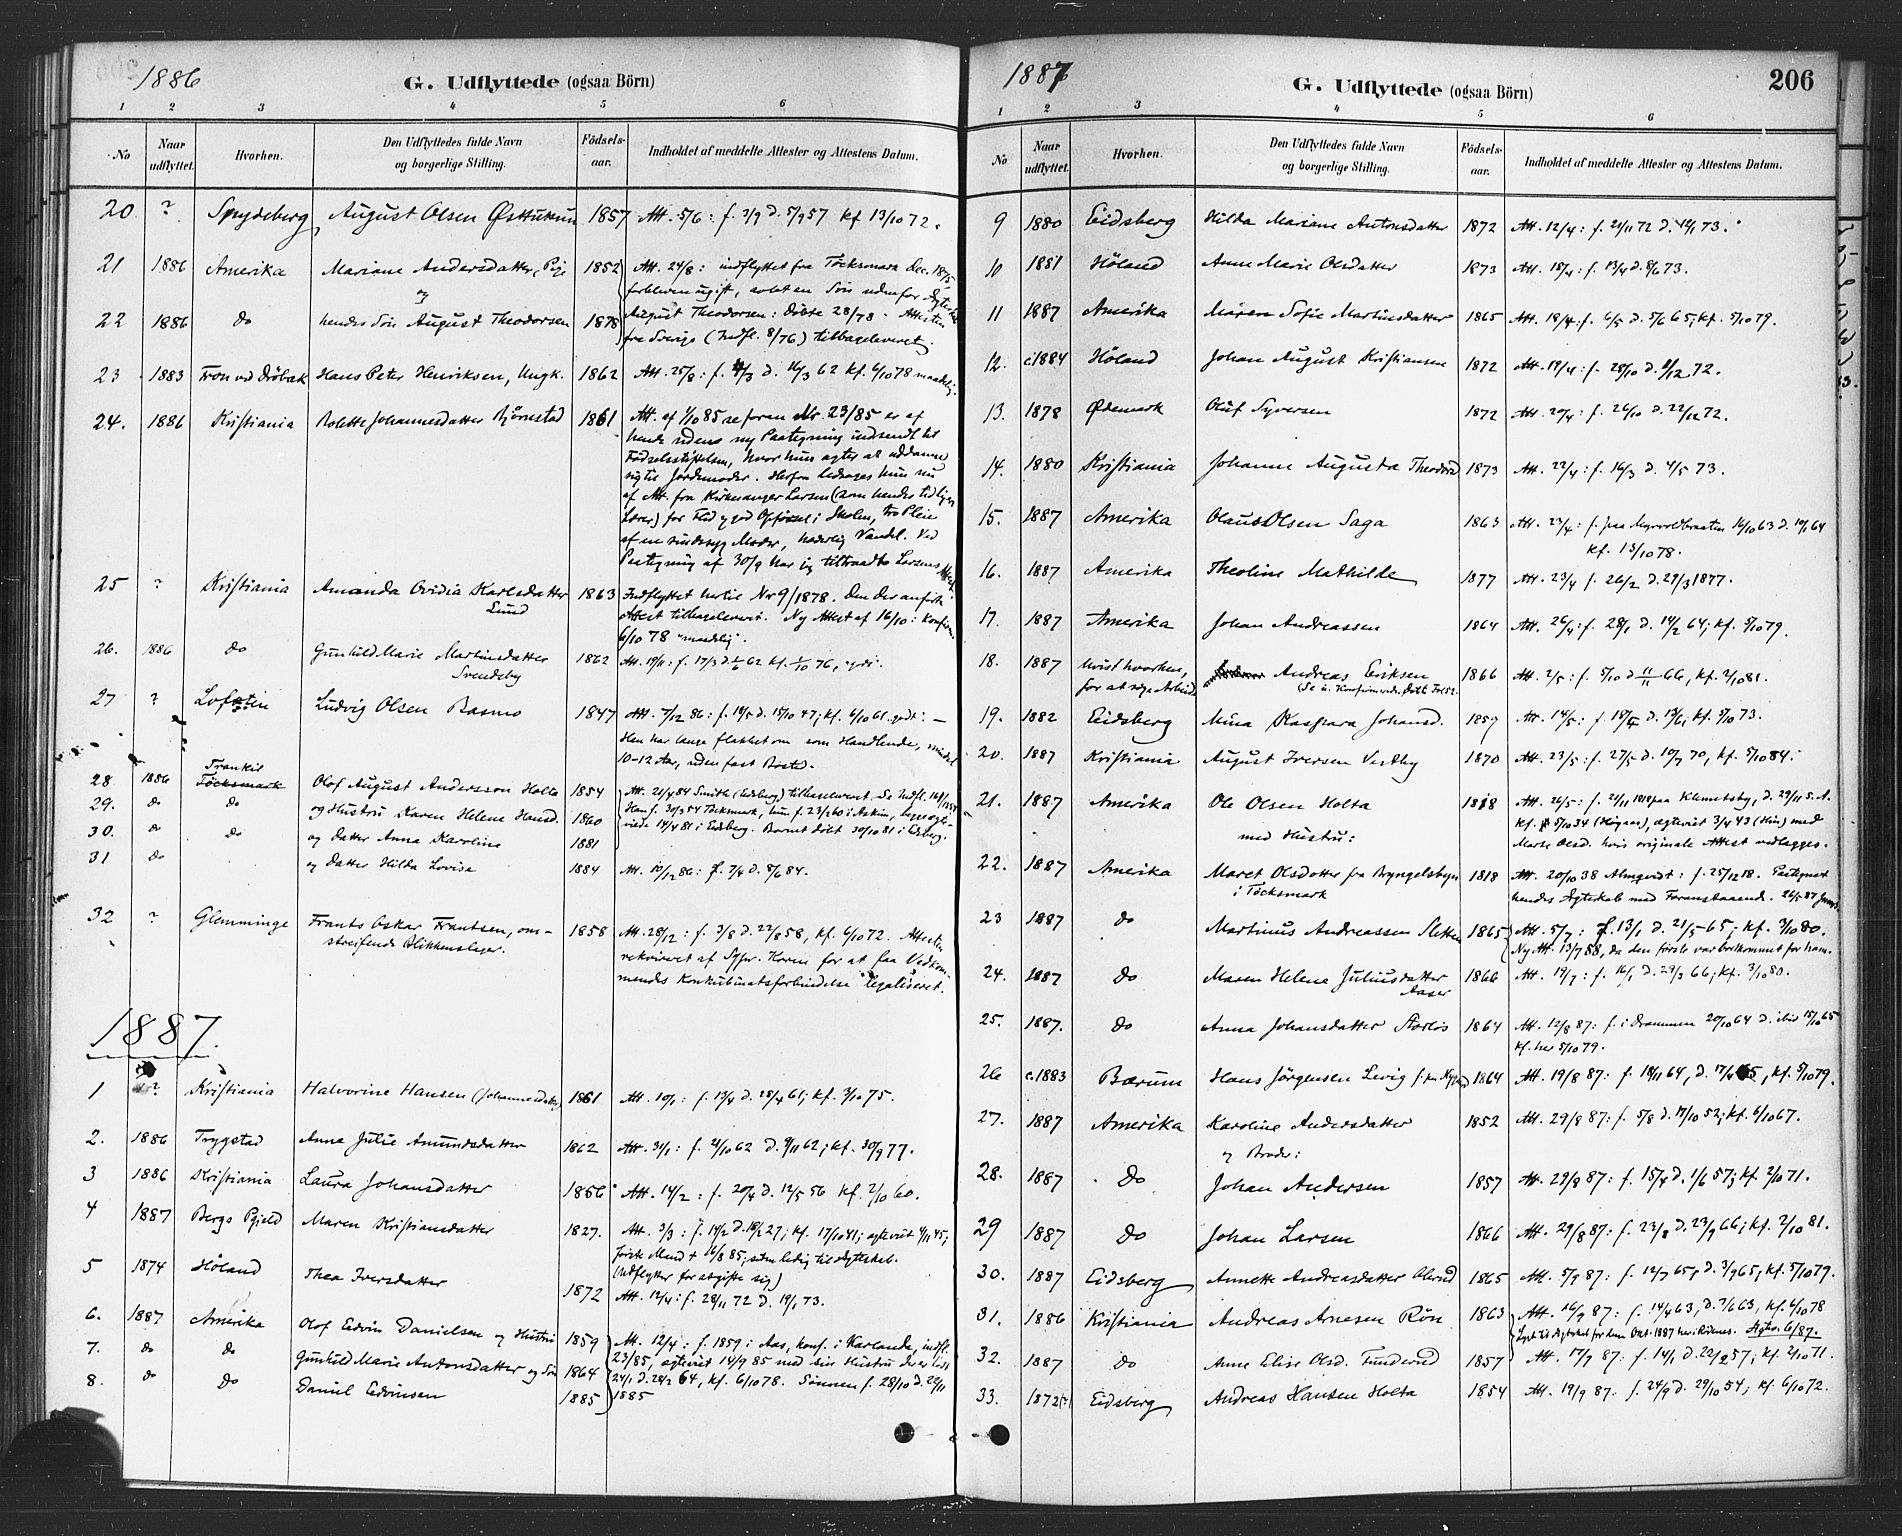 1886
G. Udflyttede (ogsaa Börn)
1 2 3 4 5 6
No
Naar udflyttet.
Hvorhen.
Den Udflyttedes fulde Navn og borgerlige Stilling.
Födsels-aar.
Indholdet af meddelte Attester og Attestens Datum.
20 ? Spydeberg August Olsen 1857 Att. 5/6: f. 2/9 d. 5/9 57 kf 13/10 72.
21 1886 Amerika Mariane Andersdatter, Pige 1852 Att. 24/8: indflyttet fra Töcksmark Dec. 1875,
og forbleven ugift, avlet en Sön udenfor Ægteskab
22 1886 do hendes Sön August Theodorsen 1878 August Theodorsen: döbte 28/78. Attesten
fra Sverige (Indfl. 8/76) tilbageleveret.
23 1883 Fron ved Dröbak Hans Peter Henriksen, Ungk. 1862 Att. 25/8: f. 4/3 d. 16/3 62 kf. 6/10 78 maadelig.
24. 1886 Kristiania Bolette Johannesdatter Bjørnestad 1861 Att. af 1/10 85 se foran Nr. 23/85 er af
hende uden ny Paategning indsendt til
Födselsstiftelsen, hvor hun agter at uddanne
sig til Jordemoder. Herfra ledsages hun nu
af Att. fra Kirkesanger Larsen (som hendes tidligere
Lærer) for Flid og god Opførsel i Skolen, tro Pleie
af en sindssyg Moder, hæderlig Vandel. Ved
Paategning af 30/9 har jeg tiltraadt Larsens Att.
25 ? Kristiania Amanda Ovidia Karlsdatter 1863 Indflyttet hertil Nr 9/1878. Den der anförte
Lund Attest tilbageleveret. Ny Attest af 16/10: konfirm.
6/10 78 "maadelig".
26. 1886 do Gunhild Marie Martinsdatter 1862 Att. 19/11: f. 17/3 d. 1/6 62 kf. 1/10 76,
Svendsby
27 ? Lofoten Ludvig Olsen Basmo 1847 Att. 7/12 86: f. 18/5 d. 15/10 47; kf. 6/10 61 godt. —
Han har længe flakket om som Handlende, mindst
10-12 Aar, uden fast Bosted.
Trankil
28. 1886 Töcksmark Olof August Andersson Holte 1854 Att. 21/4 54 Smith (Eidsberg) tilbageleveret. Se Indfl.
29. do do og Hustru Karen Helene Hansd. 1860 Han f. 30/3 54 Töcksmark, hun f. 23/2 60 i Askim, begge ægte-
30. do do og datter Anna Karoline 1881 viede 14/4 81 i Eidsberg. Barnet döbt 30/10 81 i Eidsberg.
31 do og datter Hilda Lovisa 1884 Att. 10/12 86: f. 7/4 d. 8/6 84.
32 ? Glemminge Frants Oskar Frantsen, om- 1858 Att. 28/12: f. 3/8 d. 22/8 58, kf. 6/10 72. Attesten
streifende Blikkenslager. rekvireret af Sgpr. Koren for at faa Vedkom-
mendes Konkubinatsforbindelse legaliseret.
1887.
1 ? Kristiania Halvorine Hansen (Johannesdatter) 1861 Att. 10/1: f. 13/4 d. 28/4 61; kf. 3/10 75.
2. 1886 Trygstad Anna Julie Amundsdatter 1862 Att. 31/1: f. 21/10 62 d. 9/11 62; kf. 30/9 77.
3 1886 Kristiania Laura Johansdatter 1856 Att. 14/2: f. 20/4 d. 12/5 56 kf. 2/10 60.
4 1887 Bergs Pgjeld Maren Kristiansdatter 1827. Att. 3/3: f. 14/2 d. 18/2 27; kf. 17/10 41; ægteviet 4/11 45,
förste Mand † 16/8 85; siden ledig til Ægteskab.
(Udflytter for at gifte sig)
5 1874 Höland Thea Iversdatter 1872 Att. 12/4: f. 28/11 72 d. 19/1 73.
6. 1887 Amerika Olof Edvin Danielsen og Hustru 1859 Att. 12/4: f. 1859 i Aas, konf. i Karlanda, indfl.
7. do do Gunhild Marie Antonsdatter og Sön 1864 23/85, ægteviet 14/9 85 med sin Hustru der er född
8. do do Daniel Edvinsen 1885 24/1 d. 28/2 64, kf. 6/10 78. Sönnen f. 28/10 d. 22/11
1885
1887
G. Udflyttede (ogsaa Börn)
206
1 2 3 4 5 6
No
Naar udflyttet.
Hvorhen.
Den Udflyttedes fulde Navn og borgerlige Stilling.
Födsels-aar.
Indholdet af meddelte Attester og Attestens Datum.
9 1880 Eidsberg Hilda Mariane Antonsdatter 1872 Att. 12/4: f. 21/11 72 d. 12/1 73.
10 1881 Höland Anne Marie Olsdatter 1873 Att. 18/4: f. 13/4 d. 8/6 73.
11 1887 Amerika Maren Sofie Martinsdatter 1865 Att. 18/4: f. 6/5 d. 5/6 65; kf. 5/10 79.
12. c.1884 Höland Johan August Kristiansen 1872 Att. 19/4: f. 28/10 d. 8/12 72.
13. 1878 Ødemark Oluf Syversen 1872 Att. 20/4: f. 26/10 d. 22/12 72.
14. 1880 Kristiania Johanne Augusta Theodorsd. 1873 Att. 22/4: f. 16/3 d. 4/5 73.
15. 1887 Amerika Olaus Olsen Saga 1863 Att. 23/4: f. paa Myrvoldbraaten 16/10 63 d. 10/1 64
kf. 13/10 78.
16. 1887 Amerika Theoline Mathilde 1877 Att. 23/4 f. 26/2 d. 29/3 1877.
17. 1887 Amerika Johan Andreassen 1864 Att. 26/4: f. 28/1 d. 14/2 64; kf. 5/10 79.
18. 1887 uvist hvorhen, Andreas Eriksen 1866 Att. 2/5: f. 5/10 d 11/11 66, kf. 2/10 81.
for at söge Arbeide
19. 1882 Eidsberg Mina Kaspara Johansd. 1859 Att. 14/5: f. 18/4 d. 13/6, kf. 5/10 73.
20. 1887 Kristiania August Iversen Vestby 1870 Att. 23/5: f. 27/5 d. 10/7 70, kf. 5/10 84.
21. 1887 Amerika Ole Olsen Holta 1818 Att. 26/5: f. 21/11 1818 paa Klemetsby, d. 29/11 s. A.
med Hustru: kf. 5/10 34 (Hogaas), ægteviet 3/4 43 (Hin) med
Marte Olsd. hvis originale Attest vedlægges.
22. 1887 Amerika Maret Olsdotter fra Bryngelsbyn 1818 Att. 20/10 38 Almqvist: f. 25/12 18. Paategnet
i Töcksmark hendes Ægteskab med Foranstaaende. 26/5 87
23 1887 do Martinus Andreassen Sletten 1865 Att. 5/7: f. 13/1 d. 21/5 65; kf. 3/10 80.
Ny Att. 13/7 88, da den første var bortkommet for ham.
24. 1887 do Maren Helene Juliusdatter 1866 Att. 19/7: f. 16/1 d. 29/3 66; kf. 3/10 80.
Aaser
25. 1887. do Anna Johansdatter 1864 Att. 12/8 87: f. i Drammen 20/10 64 d. ibid 15/10 65
kf. her 5/10 79.
26 c.1883 Bærum Hans Jörgensen Levig 1864 Att. 19/8 87: f. 18/11 64, d. 17/4 65, kf. 5/10 79.
27. 1887 Amerika Karoline Andersdatter 1852 Att. 29/8 87: f. 5/8 d. 17/10 52; kf. 6/10 67.
og Broder:
28. 1887 do Johan Andersen 1857 Att. 29/8 87: f. 15/4 d. 1/6 57; kf. 2/10 71.
29 1887 do Johan Larsen 1866 Att. 29/8 87: f. 23/8 d. 23/9 66; kf. 2/10 81.
30. 1887 Eidsberg Annette Andreasdatter 1865 Att. 5/9 87: f. 12/7 65, d. 3/9 65; kf. 5/10 79.
31. 1886 Kristiania Andreas Arnesen Rön 1863 Att. 16/9 87: f. 14/4 63, d. 7/6 63, kf. 6/10 78
Lyst til Ægteskab för dem Okt. 1887 her i Rödenes. Ægtev. 6/87.
32. 1887 do Anne Elise Olsd. Funderud 1857 Att. 17/9 87: f. 14/1 d. 22/2 57; kf. 2/10 71.
33. 1872(?) Eidsberg Andreas Hansen Holta 1854 Att. 19/9 87: f. 24/9 d. 29/10 54; kf. 6/10 72.